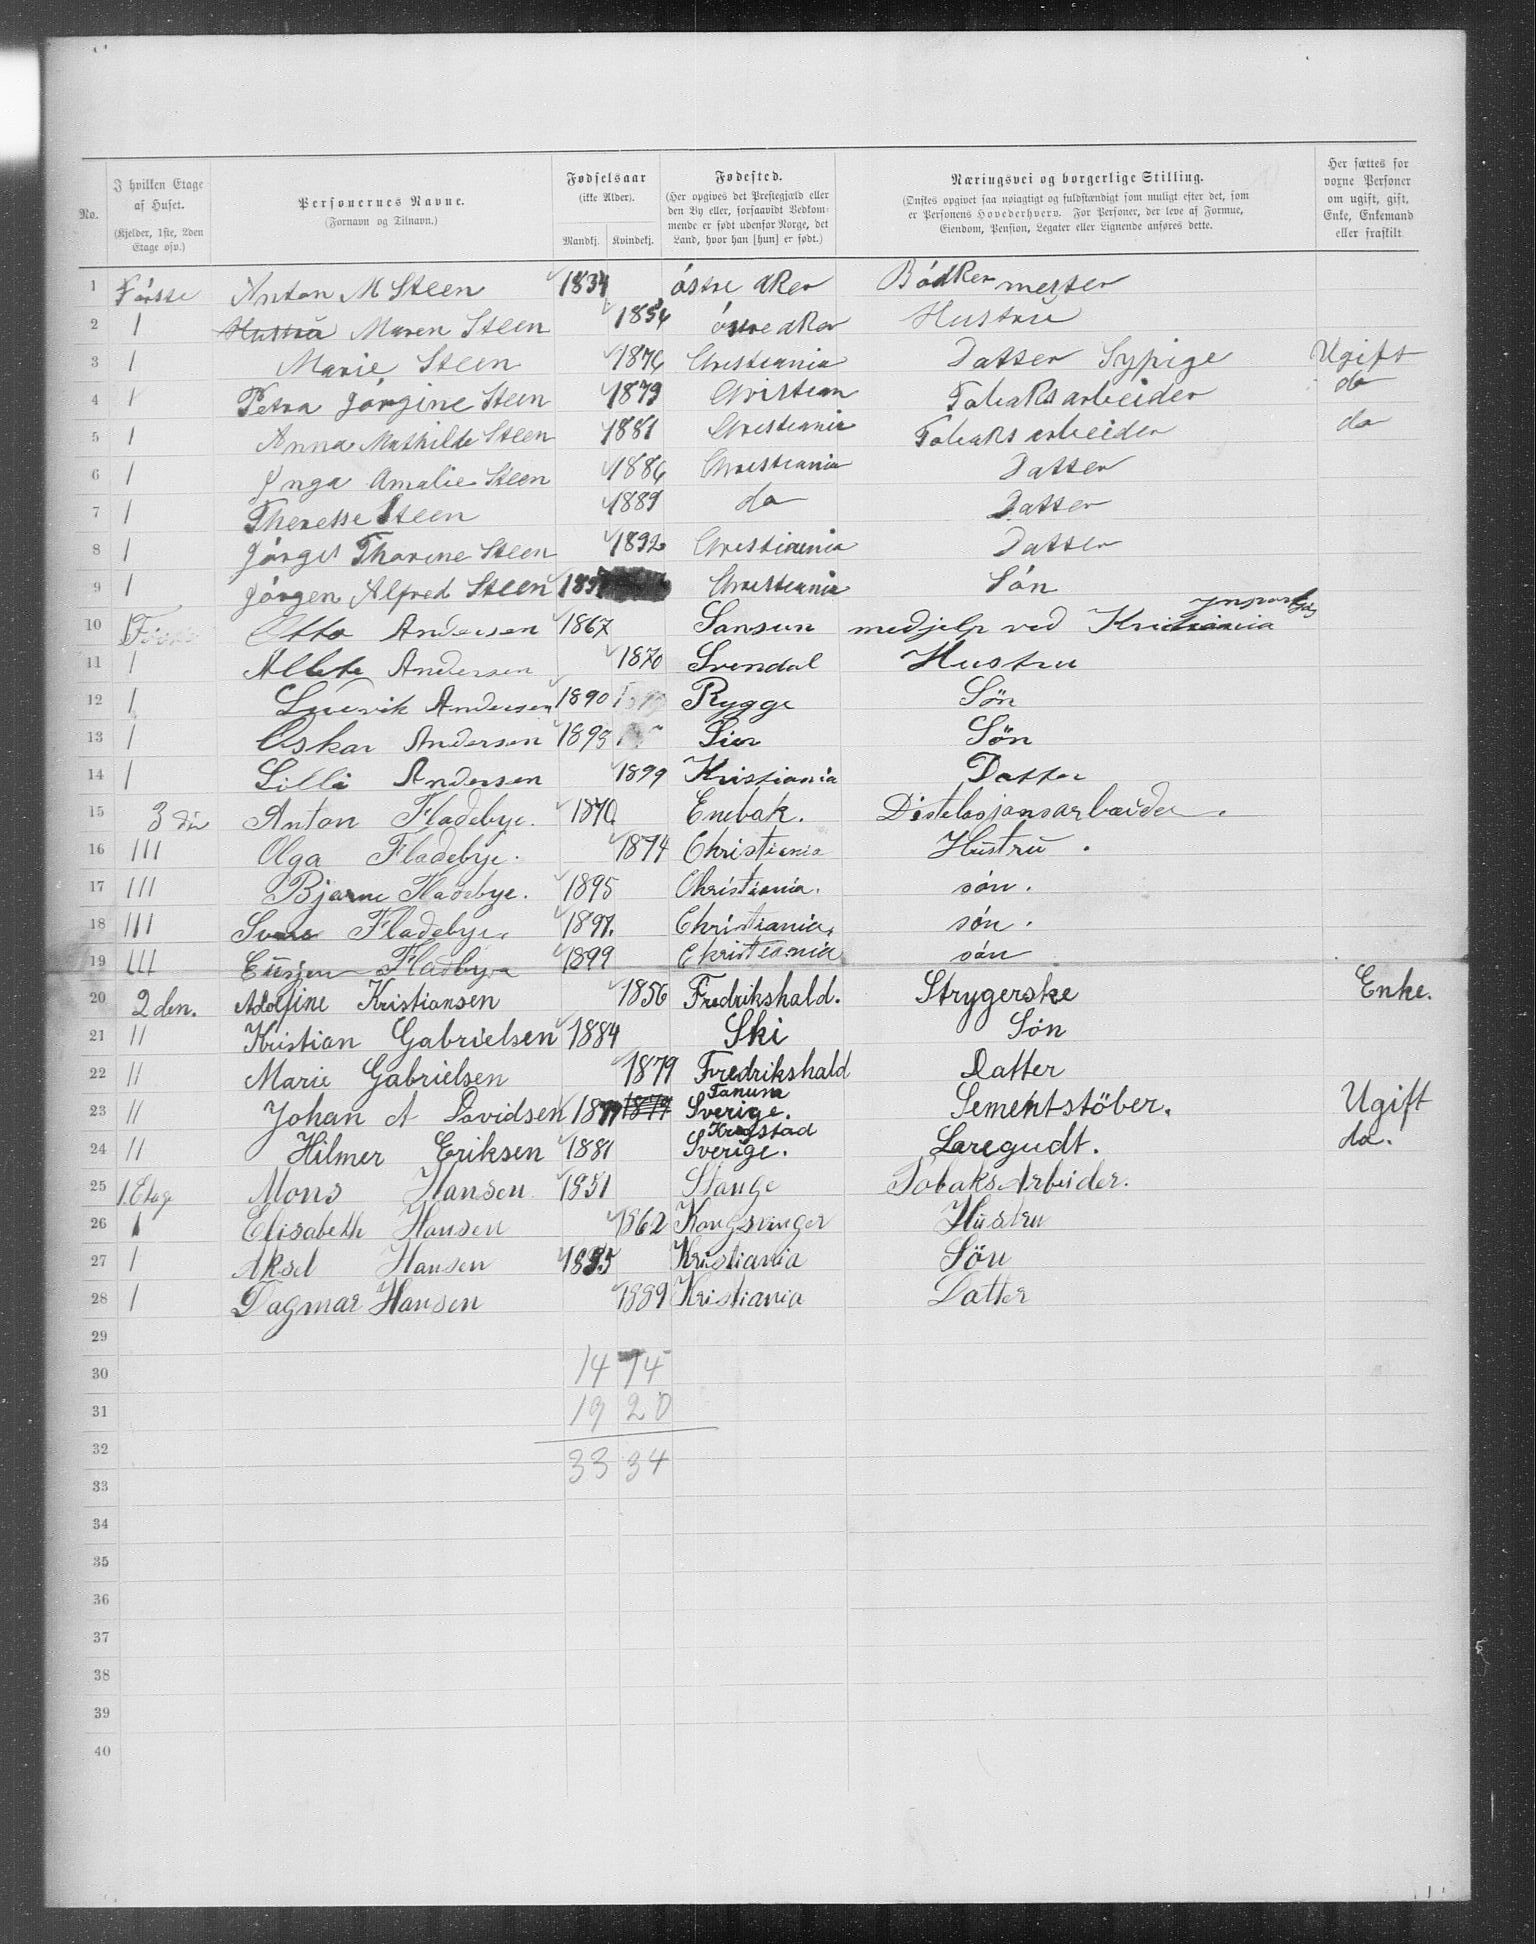 No.
I hvilken Etage af Huset.
(Kjelder, 1ste, 2den Etage osv.)
Personernes Navne.
(Fornavn og Tilnavn.)
Fødselsaar
(ikke Alder).
Mandkj. Kvindekj.
Fødested.
(Her opgives det Prestegjæld eller den By eller, forsaavidt Vedkommende er født udenfor Norge, det Land, hvor han [hun] er født.)
Næringsvei og borgerlige Stilling.
(Ønskes opgivet saa nøiagtigt og fuldstændigt som muligt efter det, som er Personens Hovederhverv. For Personer, der leve af Formue, Eiendom, Pension, Legater eller Lignende anføres dette.
Her sættes for voxne Personer om ugift, gift, Enke, Enkemand eller fraskilt
1 Förste Anton M Steen 1834 östre Aker Bödker mester
2 1 Hustru Maren Steen 1854 östre Aker Hustru
3 1 Marie Steen 1876 Christiania Datter Sypige Ugift
4 1 Petra Jörgine Steen 1879 Christian Tobaksarbeider do
5 1 Anna Mathilde Steen 1881 Christiania Tobaksarbeider do
6 1 Ynga Amalie Steen 1886 Christiania Datter
7 1 Theresse Steen 1889 do Datter
8 1 Thorine Steen 1892 Christiania Datter
9 1 Jörgen Alfred Steen Christiania Sön
10 Otto Andersen 1867 medjelp ved
11 1 Andersen 1870 Hustru
12 1 Ludvik Andersen 1890 Rygge Sön
13 1 Oskar Andersen 1893 Lier Sön
14 1 Lilli Andersen 1899 Kristiania Datter
15 3 die Anton Fladebye. 1870. Enebak. Distelasjonsarbæider.
16 111 Olga Fladebye. 1874 Christiania Hustru.
17 111 Bjarne Fladebye. 1895 Christiania. sön.
18 111 Fladebye. 1897. Christiania. sön.
19 111 Eusjen Fladbye 1899 Christiania sön
20 2 den. Adolfine Kristiansen 1856 Fredrikshald. Strygerske Enke.
21 11 Kristian Gabrielsen 1884 Ski Sön
22 11 Marie Gabrielsen 1879 Fredrikshald Datter
23 11 Johan A Davidsen 1879 Tanum Sverige. Sementstöber. Ugift
24 11 Hilmer Eriksen 1881 Krogstad Sverige. Laregudt. do.
25 1. Etag Mons Hansen 1851 Stange Tobaks Arbeider.
26 1 Elisabeth Hansen 1862 Kongsvinger Hustru
27 1 Aksel Hansen Kristiania Sön
28 1 Dagmar Hansen 1889 Kristiania Datter
29
30 14 14
31 19 20
32 33 34
33
34
35
36
37
38
39
40